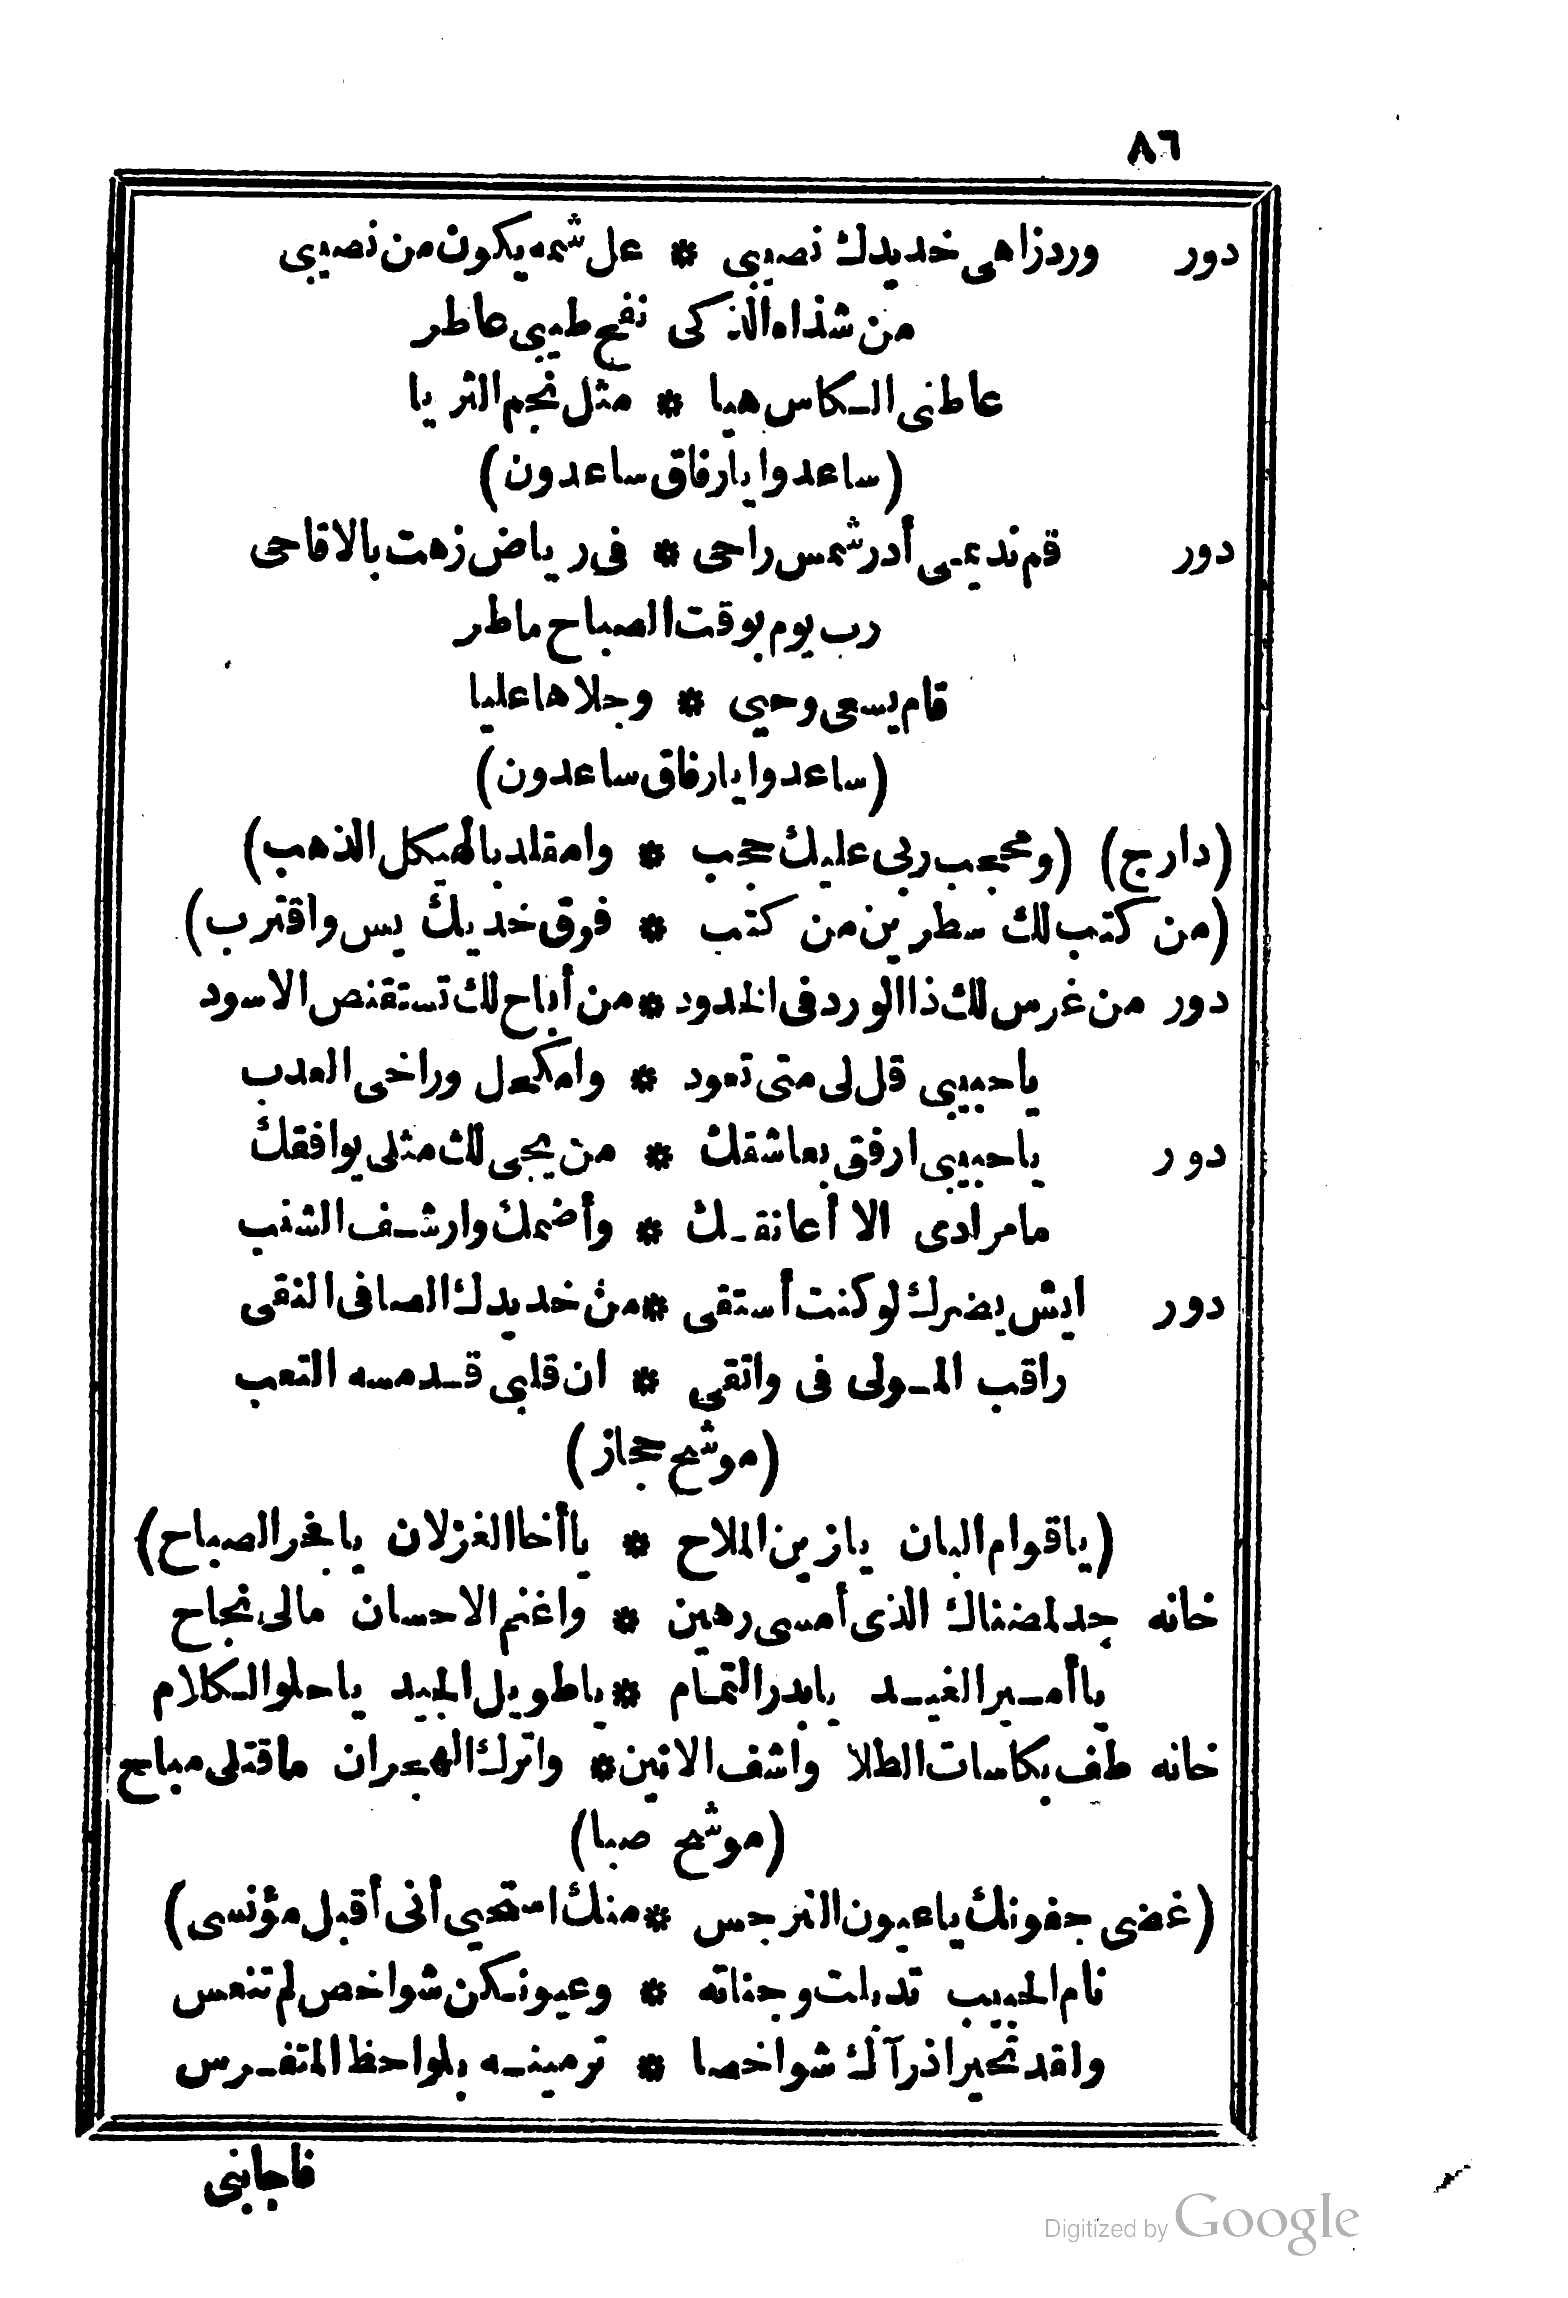 ٨٦
دور ورد زاهى خديدك نصيبى * عل شمه يكون من نصيبى
من شذاه الذكى نفح طيبى عاطر
عاطنى الكاس هيا * مثل نجم الثريا
(ساعدوا يارفاق ساعدون)
دور قم نديمى أدر شمس راحى * فى رياض زهت بالاقاحى
رب يوم بوقت الصباح ماطر
قام يسعى وحيى * وجلاها عليا
(ساعدوا يارفاق ساعدون)
(دارج) (ومحجب ربى عليك حجب * وامقلد بالهيكل الذهب)
(من كتب لك سطرين من كتب * فوق خديك يس واقترب)
دور من غرس لك ذا الورد فى الخدود * من أباح لك تستقنص الاسود
ياحبيبى قل لى متى تعود * وامكحل وراخى العدب
دور ياحبيبى ارفق بعاشقك * من يجى لك مثلى يوافقك
مامرادى الا أعانقك * وأضمك وارشف الشنب
دور ايش يضرك لو كنت أستقى * من خديدك الصافى النقى
راقب المولى فى واتقى * ان قلبى قد مسه التعب
(موشح حجاز)
(ياقوام البان يازين الملاح * ياأخا الغزلان يافخر الصباح)
خانه جد لمضناك الذى أمسى رهين * واغنم الاحسان مالى نجاح
ياأمير الغيد يابدر التمام * ياطويل الجيد ياحلو الكلام
خانه طف بكاسات الطلا واشف الانين * واترك الهجران ماقتلى مباح
(موشح صبا)
(غضى جفونك ياعيون النرجس * منك استحيي أنى أقبل مؤنسى)
نام الحبيب تدبلت وجناته * وعيونكن شواخص لم تنعس
ولقد تحير اذ رآك شواخصا * ترمينه بلواحظ المتفرس
فاجابنى
Digitized by Google